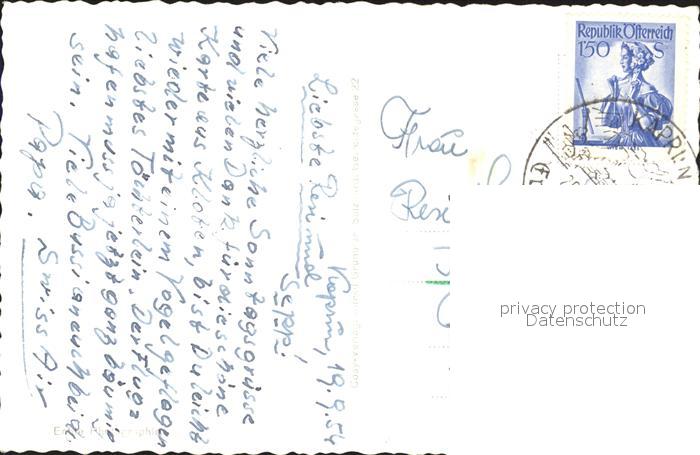 Kaprun, 19.9.54
Liebste Resi und
Seppi!
Viele herzliche Sonntagsgrüsse
und vielen Dank für die schöne
Karte aus Kloten, bist Du leicht
wieder mit einem Vogel geflogen
liebstes Töchterlein. Der Flug=
hafen muss ja jetzt ganz
sein. Viele Bussi an euch beide
Papa. Swiss Air
Frau
Resi
Republik Österreich
1'50 S
KAPRUN
privacy protection
Datenschutz